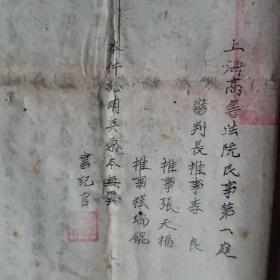 上海高等法院民事第一庭
審判長推事李良
推事張天福
推事楊瑞錕
本件証明與原本無異
書記官